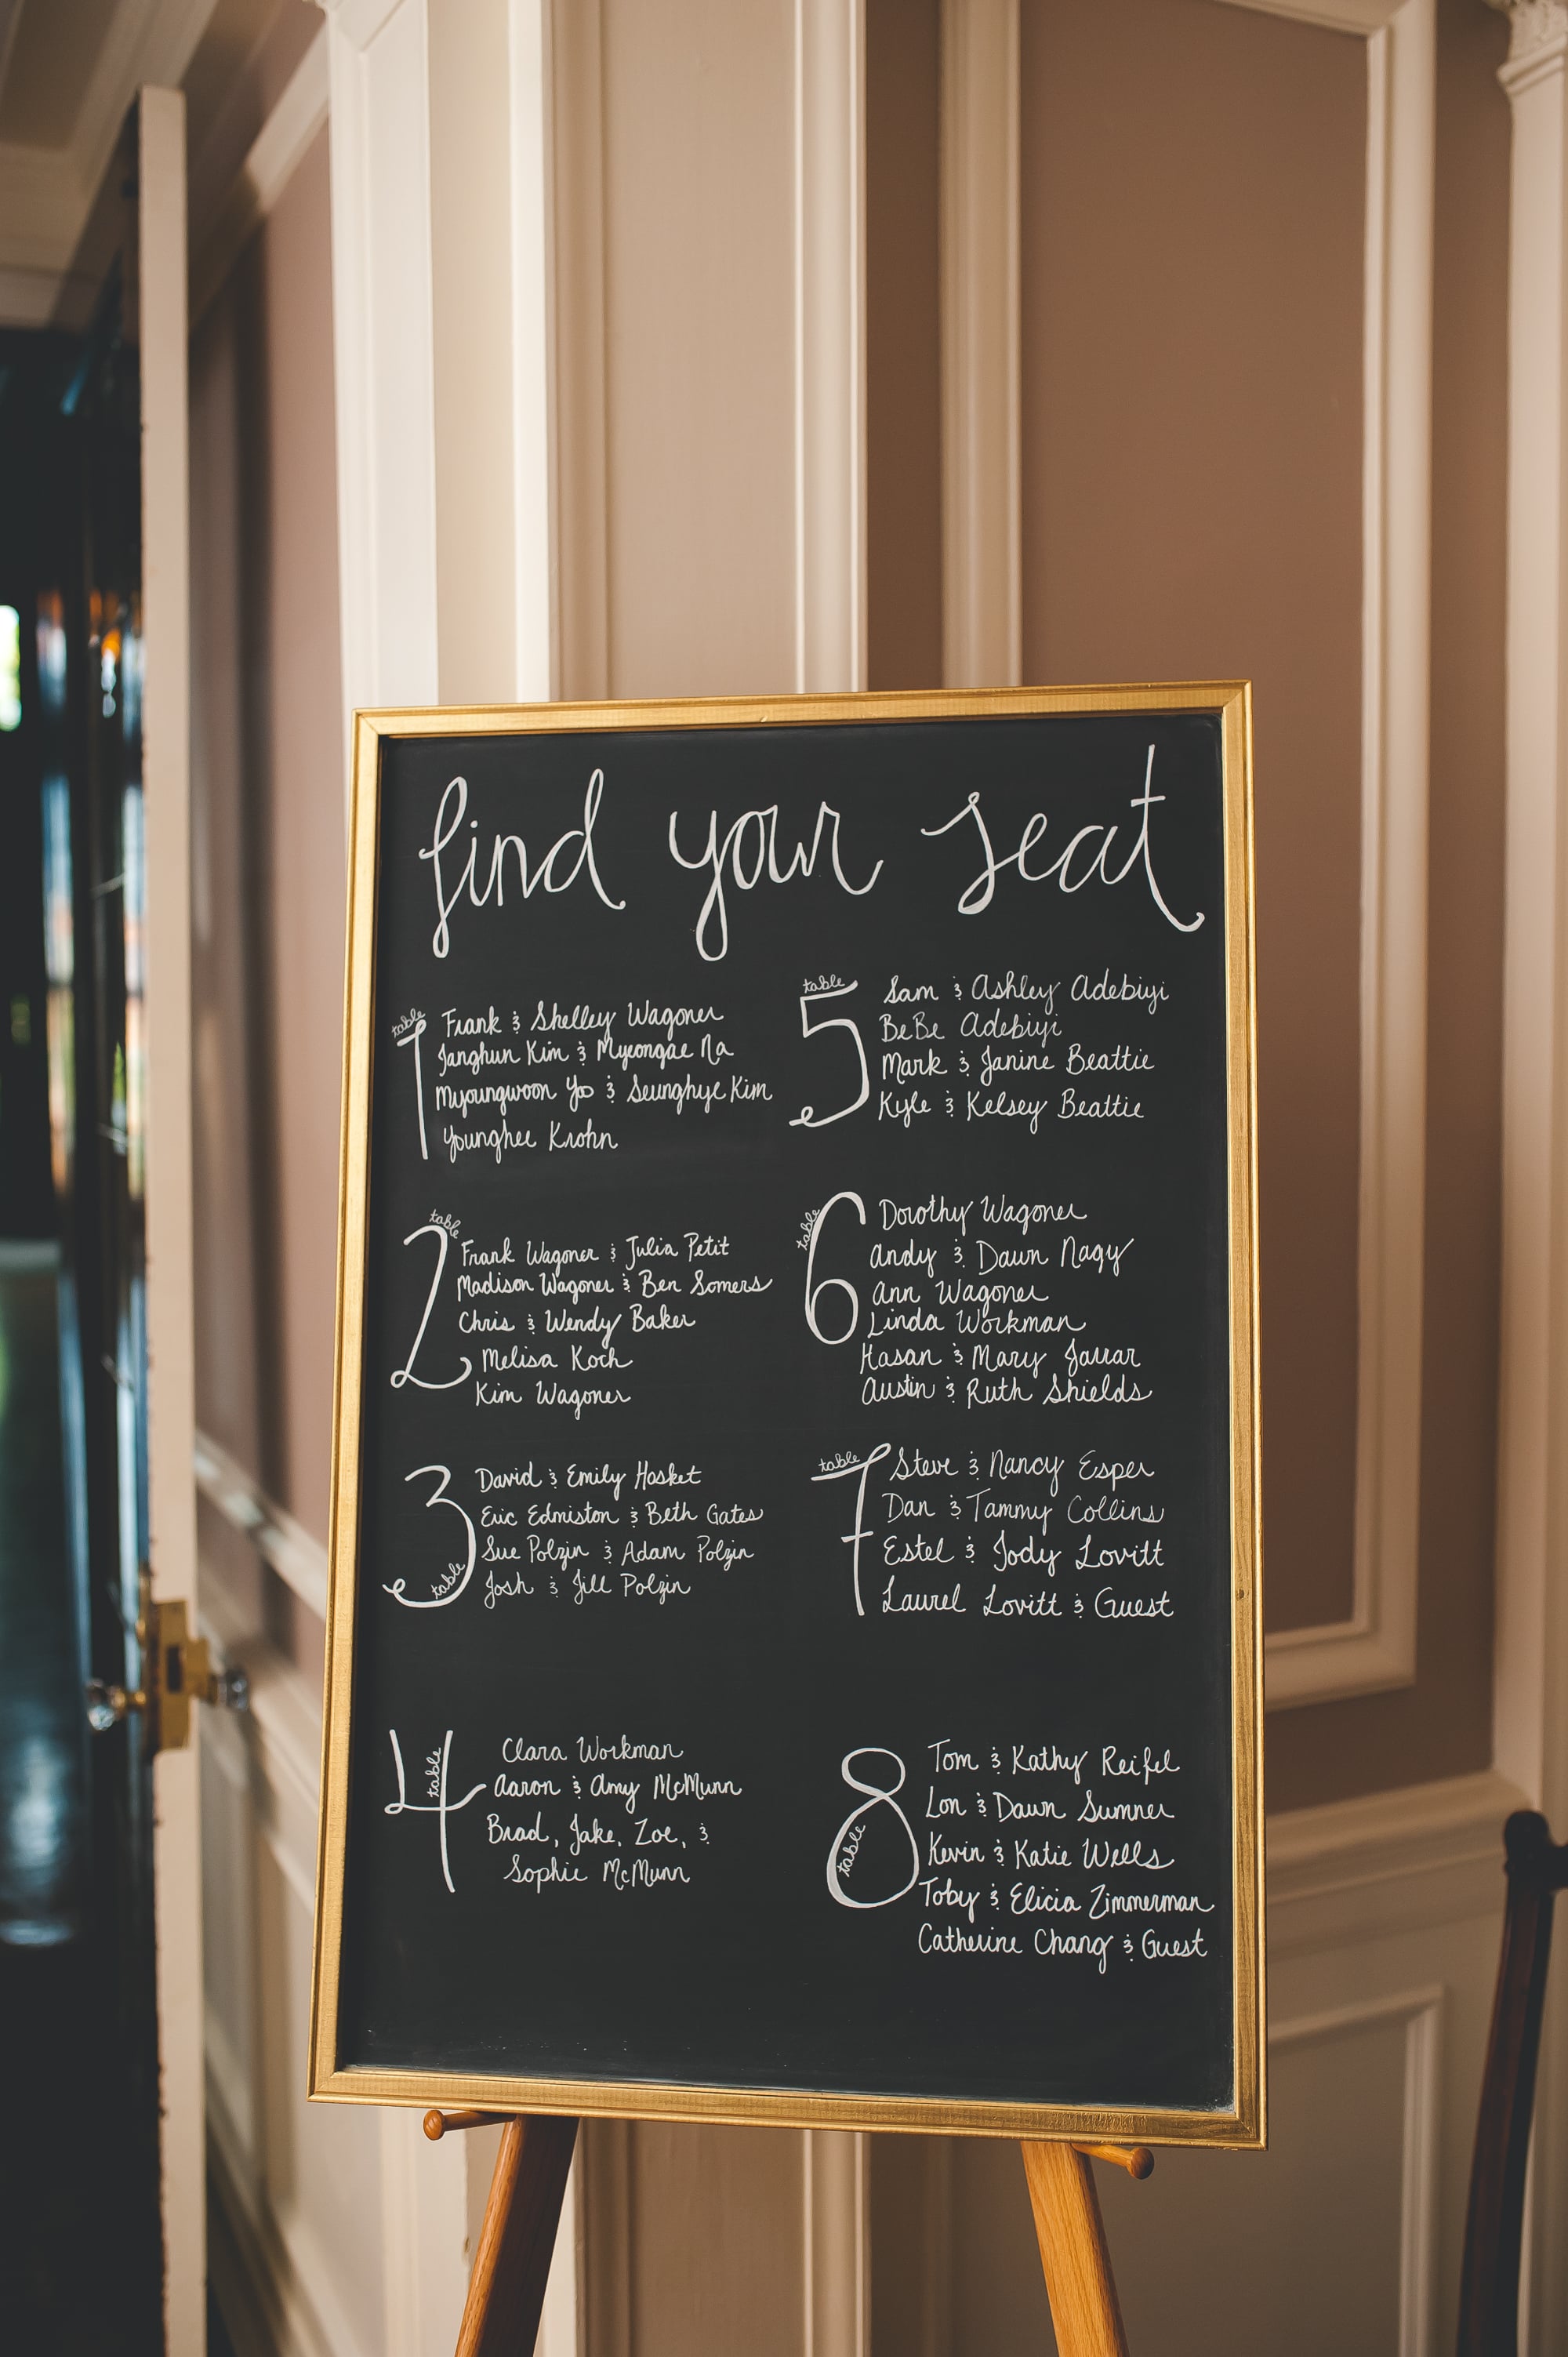 find your seat
table 1
Frank & Shelley Wagoner
Janghun Kim & Myeongae Na
Myoungwoon Yoo & Seunghye Kim
Younghee Krohn
table 2
Frank Wagoner & Julia Petit
Madison Wagoner & Ben Somers
Chris & Wendy Baker
Melisa Koch
Kim Wagoner
table 3
David & Emily Hosket
Eric Edmiston & Beth Gates
Sue Polzin & Adam Polzin
Josh & Jill Polzin
table 4
Clara Workman
Aaron & Amy McMunn
Brad, Jake, Zoe, &
Sophie McMunn
table 5
Sam & Ashley Adebiyi
BeBe Adebiyi
Mark & Janine Beattie
Kyle & Kelsey Beattie
table 6
Dorothy Wagoner
Andy & Dawn Nagy
Ann Wagoner
Linda Workman
Hasan & Mary Jarrar
Austin & Ruth Shields
table 7
Steve & Nancy Esper
Dan & Tammy Collins
Estel & Jody Lovitt
Laurel Lovitt & Guest
table 8
Tom & Kathy Reifel
Lon & Dawn Sumner
Kevin & Katie Wells
Toby & Elicia Zimmerman
Catherine Chang & Guest